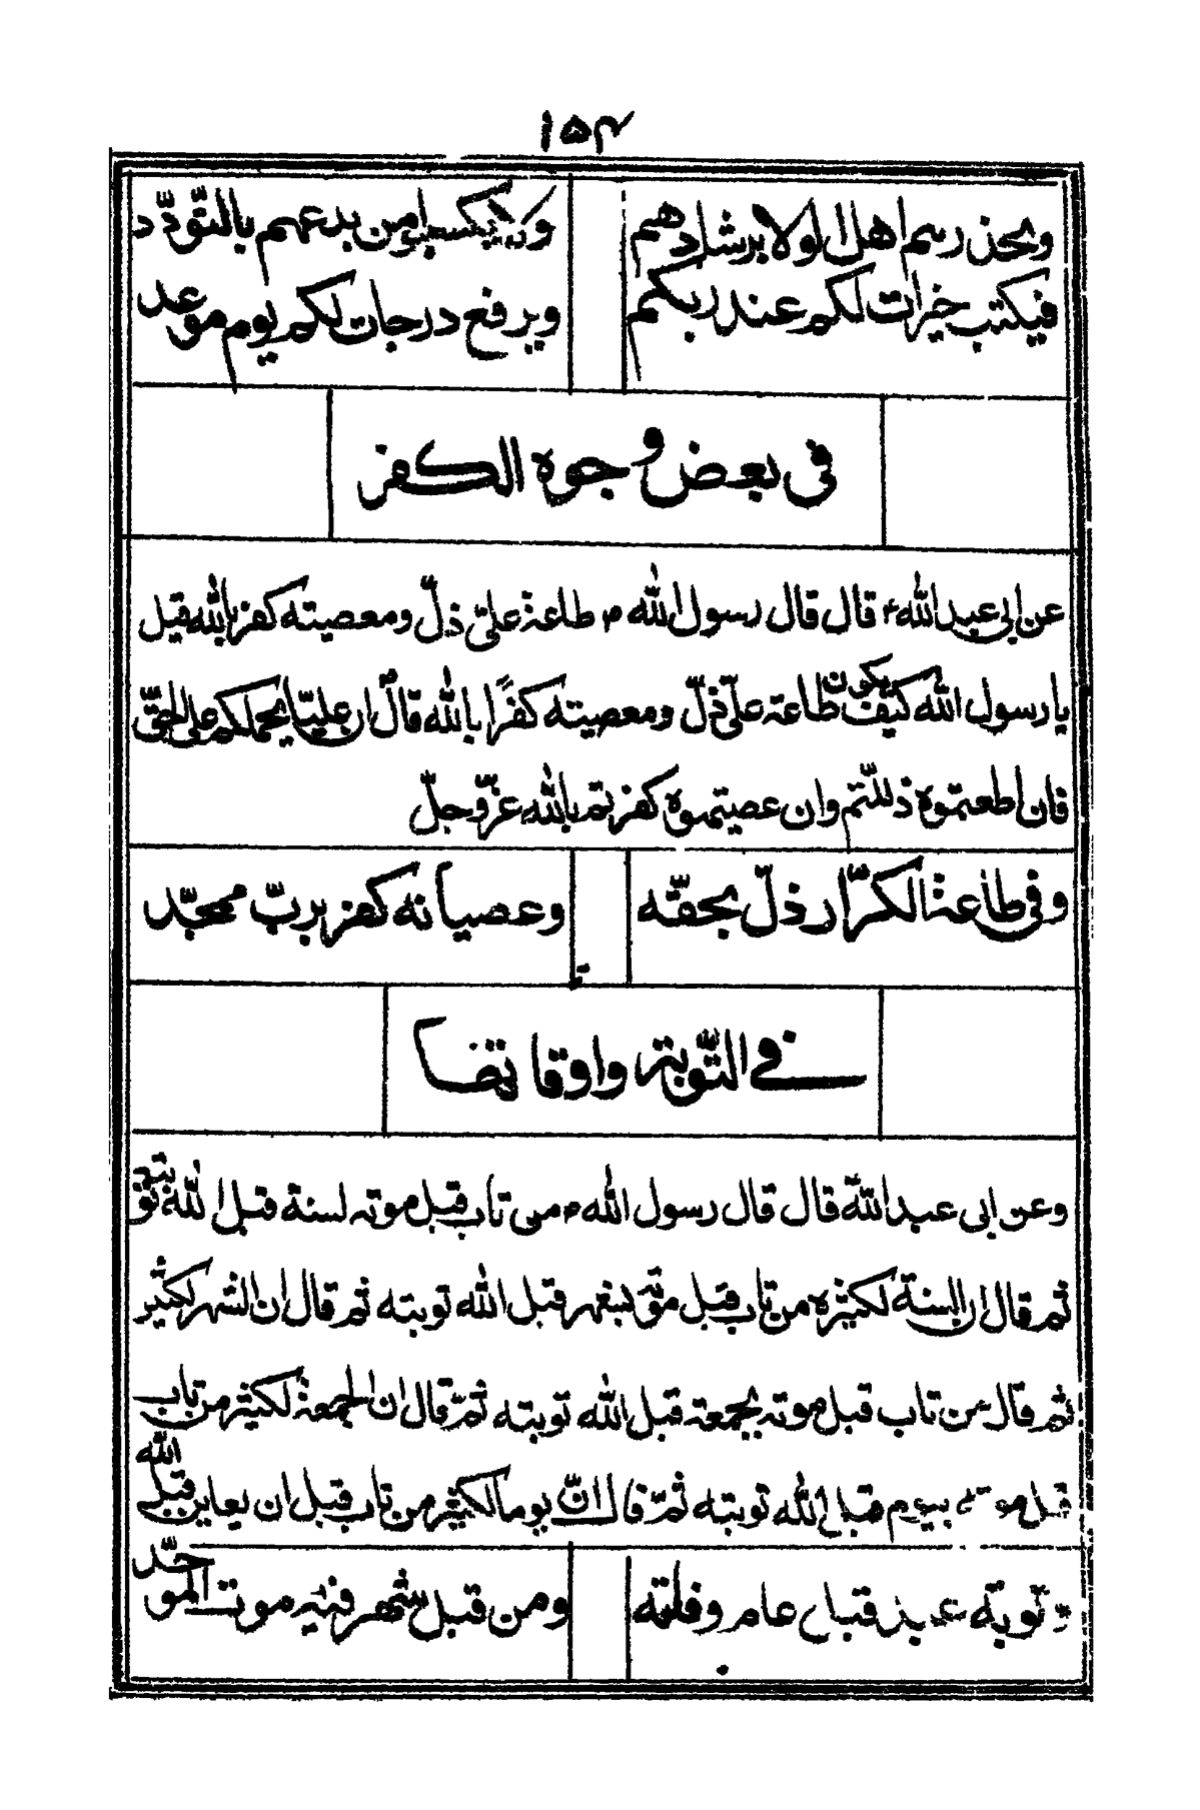 ١٥۴
ويحذر رسم اهل الولا برشادهم
ولا يكسبوا من بدعهم بالتودّد
فيكتب خيرات لكم عند ربكم
ويرفع درجات لكم يوم موعد
فى بعض وجوه الكفر
عن ابى عبد الله ع قال قال رسول الله ص طاعة علىّ ذلّ ومعصيته كفر بالله قيل
يا رسول الله كيف يكون طاعة علىّ ذلّ ومعصيته كفرًا بالله قال ان عليّا يحملكم على الحقّ
فان اطعتموه ذللتم وان عصيتموه كفرتم بالله عزّ وجلّ
وفى طاعة الكرّار ذلّ بحقّه
وعصيانه كفر بربّ محمّد
فى التّوبة واوقاتها
وعن ابى عبد الله قال قال رسول الله ص من تاب قبل موته لسنة قبل الله توبته
ثم قال ان السنة لكثيره من تاب قبل موته بشهر قبل الله توبته ثم قال ان الشهر لكثير
ثم قال من تاب قبل موته بجمعة قبل الله توبته ثمّ قال ان الجمعة لكثير من تاب
قبل موته بيوم قبل الله توبته ثمّ قال انّ يوما لكثير من تاب قبل ان يعاين قبل الله
توبة عبد قبل عام وفاته
ومن قبل شهر فيه موت الموحّد